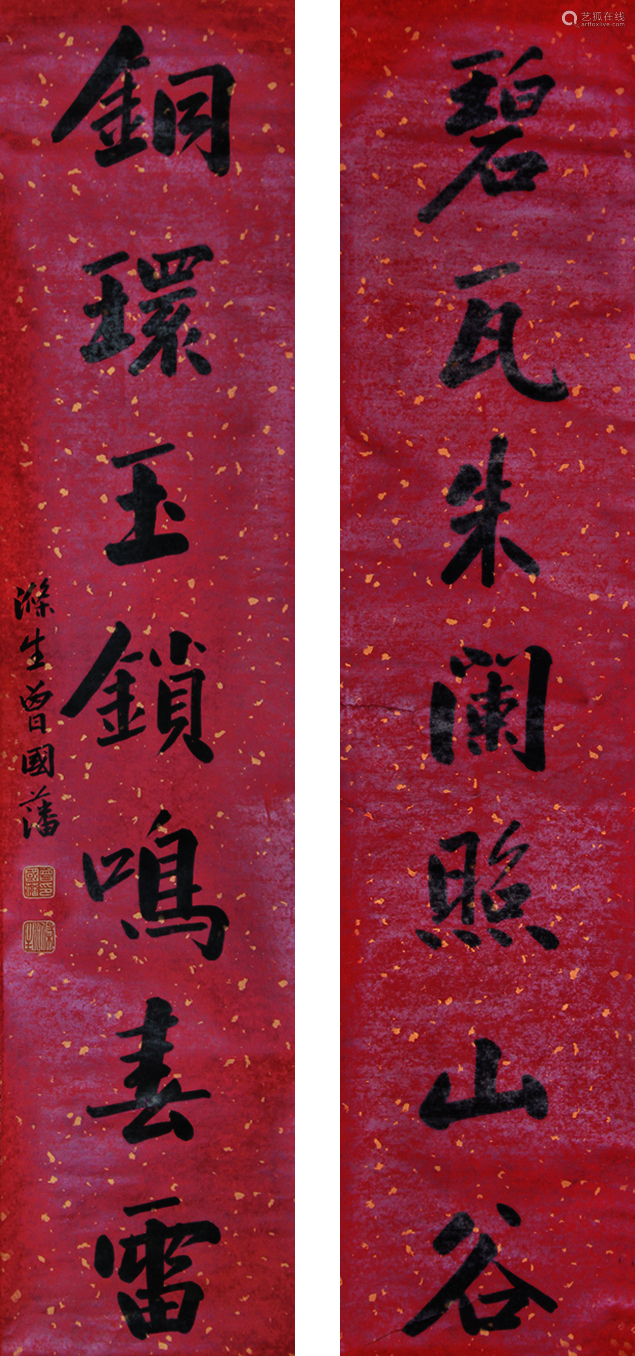 碧瓦朱闌照山谷
銅環玉鎖鳴春雷
滌生曾國藩
艺狐在线
artfoxlive.com